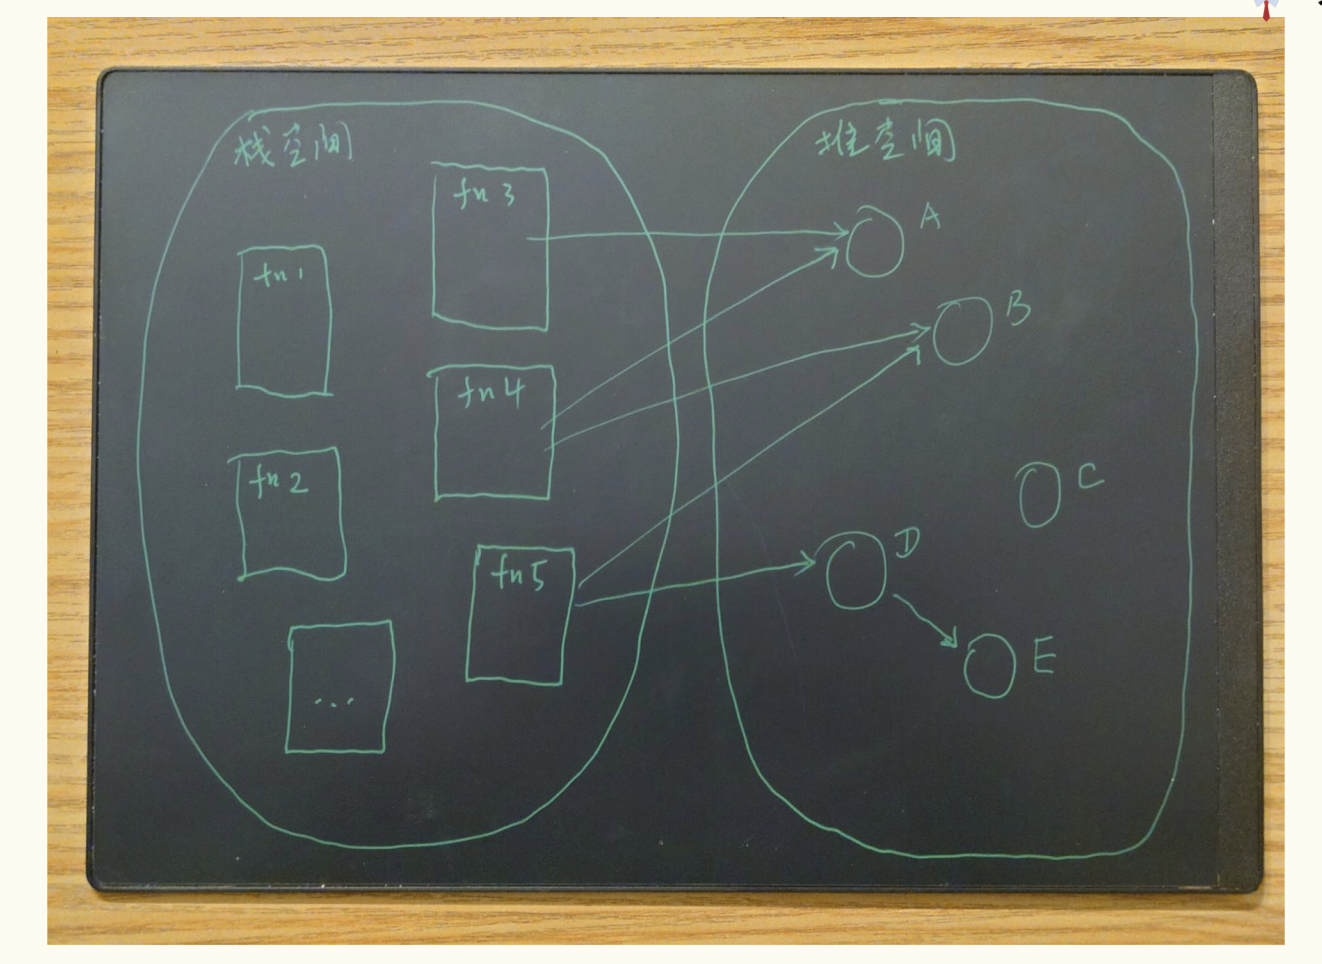 栈空间
fn 1
fn 2
...
fn 3
fn 4
fn 5
堆空间
A
B
C
D
E